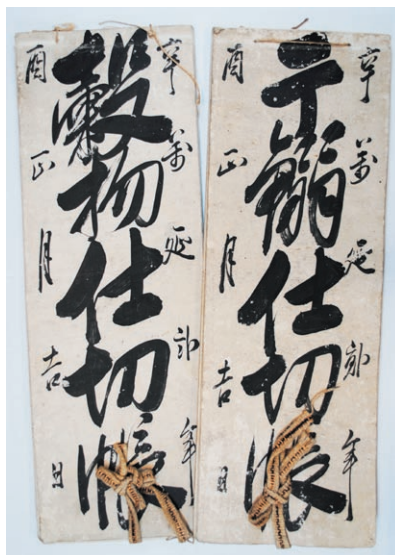 辛萬延弐年
干鰯仕切帳
酉正月吉日
辛萬延弐年
穀物仕切帳
酉正月吉日